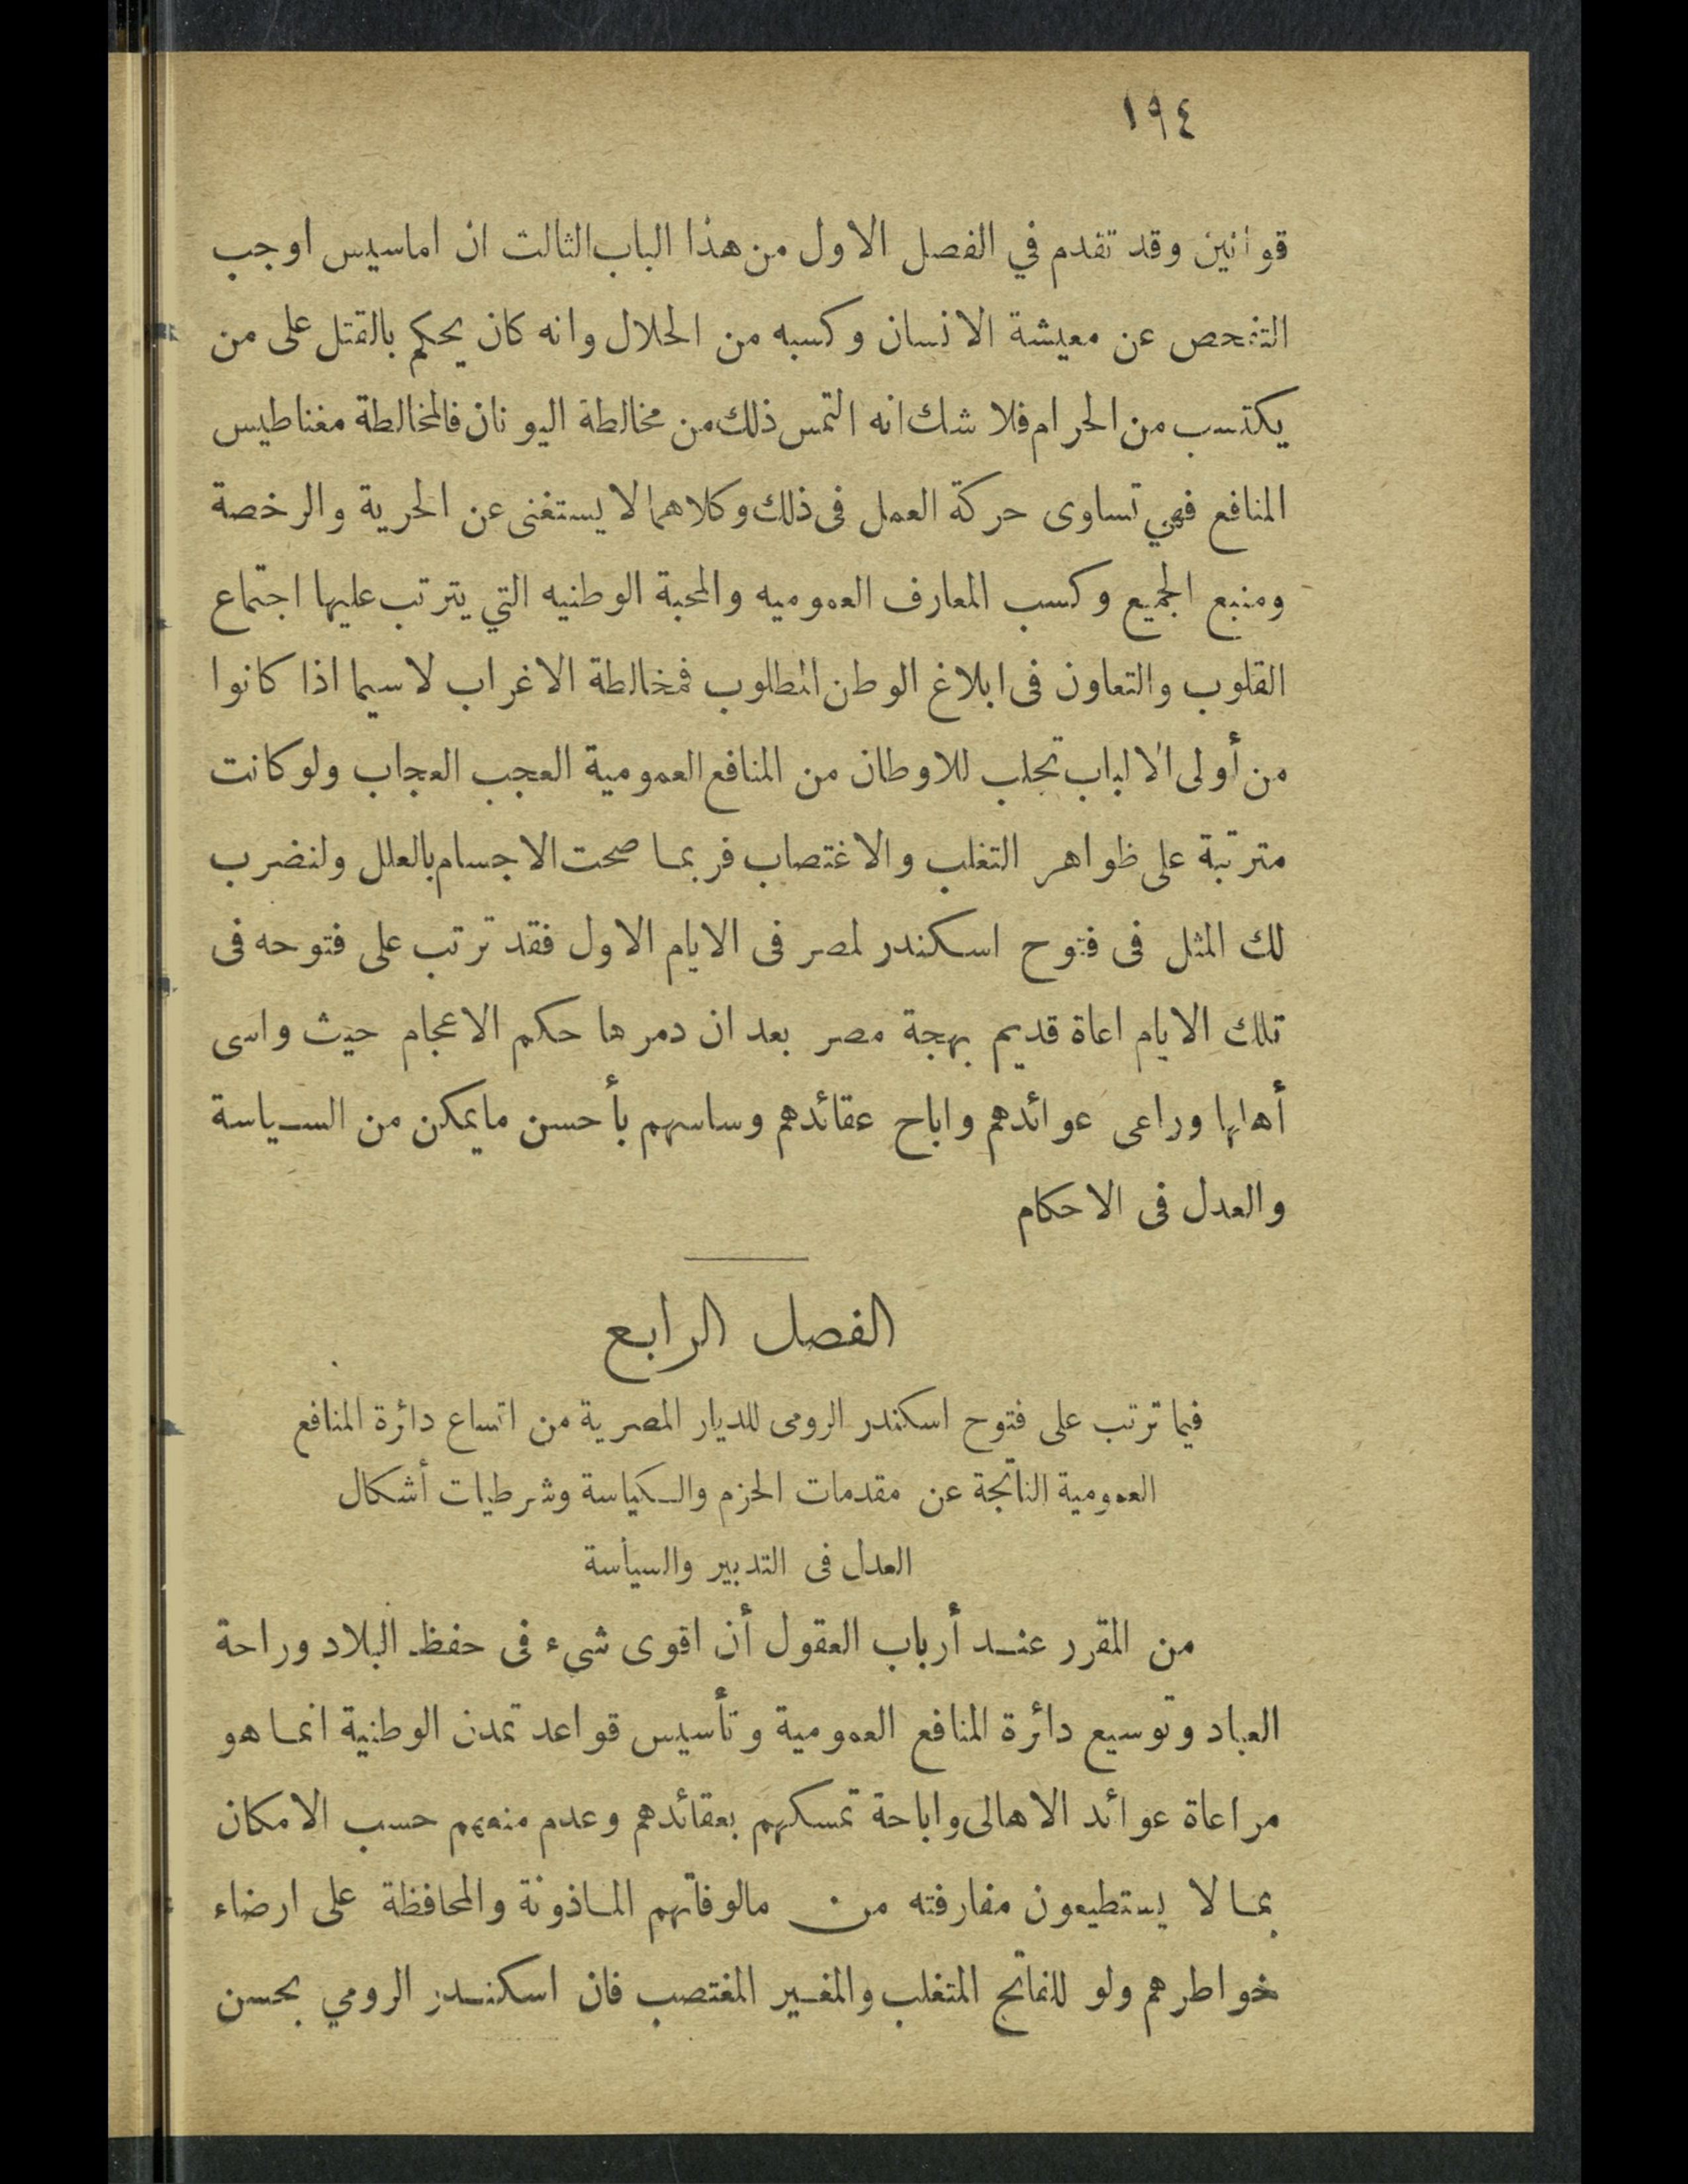 ١٩٤
قوانين وقد تقدم في الفصل الاول من هذا الباب الثالث ان اماسيس اوجب
التفحص عن معيشة الانسان وكسبه من الحلال وانه كان يحكم بالقتل على من
يكتسب من الحرام فلا شك انه التمس ذلك من مخالطة اليونان فالمخالطة مغناطيس
المنافع فهي تساوى حركة العمل فى ذلك وكلاهما لا يستغنى عن الحرية والرخصة
ومنبع الجميع وكسب المعارف العموميه والمحبة الوطنيه التي يترتب عليها اجتماع
القلوب والتعاون فى ابلاغ الوطن المطلوب فمخالطة الاغراب لاسيما اذا كانوا
من أولى الالباب تجلب للاوطان من المنافع العمومية العجب العجاب ولو كانت
مترتبة على ظواهر التغلب والاغتصاب فربما صحت الاجسام بالعلل ولنضرب
لك المثل فى فتوح اسكندر لمصر فى الايام الاول فقد ترتب على فتوحه فى
تلك الايام اعاة قديم بهجة مصر بعد ان دمرها حكم الاعجام حيث واسى
أهلها وراعى عوائدهم واباح عقائدهم وساسهم بأحسن مايمكن من السياسة
والعدل فى الاحكام
الفصل الرابع
فيما ترتب على فتوح اسكندر الرومى للديار المصرية من اتساع دائرة المنافع
العمومية الناتجة عن مقدمات الحزم والكياسة وشرطيات أشكال
العدل فى التدبير والسياسة
من المقرر عند أرباب العقول أن اقوى شيء فى حفظ البلاد وراحة
العباد وتوسيع دائرة المنافع العمومية وتأسيس قواعد تمدن الوطنية انما هو
مراعاة عوائد الاهالى واباحة تمسكهم بعقائدهم وعدم منعهم حسب الامكان
بما لا يستطيعون مفارفته من مالوفاتهم الماذونة والمحافظة على ارضاء
خواطرهم ولو للفاتح المتغلب والمغير المغتصب فان اسكندر الرومي بحسن